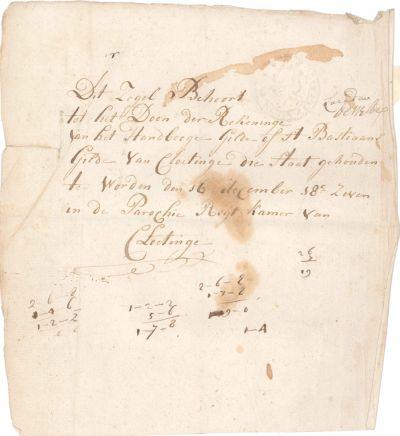 Dit Zegel Behoort
tot het Doen der Rekeninge
van het Handbooge Gilde of St Bastiaans
Gilde van Cloetinge die Staat gehouden
te Worden den 16 december 18c Zeven
in de Parochie Regt Kamer van
Cloetinge
26
19
2-6-8
1-4-6
1-2-2
1-2-2
5-6
1-7-8
2-6-8
1-7-8
19-0
1-A